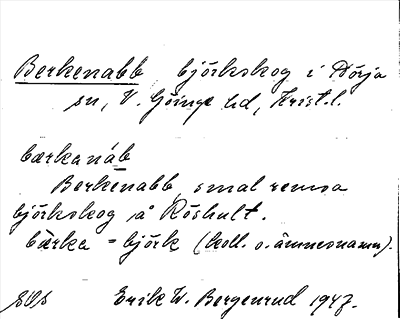 Berkenabb, björkskog i Dörja
sn, V. Göinge hd, Krist.l.
bærkanáb
Berkenabb, smal remsa
björkskog å Röshult.
bærka = björk (koll. o. ämnesnamn).
Erik W. Bergenrud 1947.